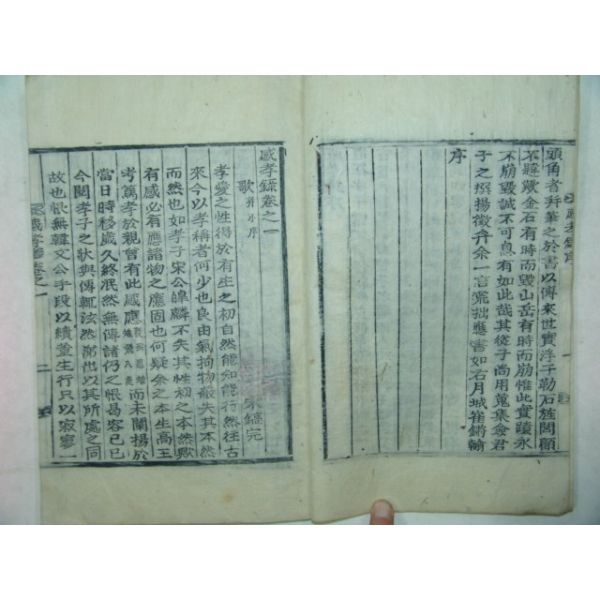 頭角者幷筆之於書以傳來世實浮于勒石旌閭願
不韙歟金石有時而毁山岳有時而崩惟此實蹟永
不崩毁誠不可息有如此哉其從子尚用蒐集僉君
子之撰揚徵弁余一言罷拙應書如右月城崔鏘翰
序
感孝錄序
感孝錄卷之一
歌并小序
宋繼完
孝愛之性得於有生之初自然能知能行然往古
來今以孝稱者何少也良由氣拘物蔽失其本然
而然也如孝子宋公皥麟不失其性初之本然歟
有感必有應諸物之應固也何疑余之本生高王
考篤孝於親曾有此感應而未闡揚於
當日時移歲久終泯然無傳諸仍之恨曷容已已
今閱孝子之狀與傳輒泫然
也以其所處之同
故也恨無韓文公手段以續董生行只以寂寥一
感孝錄卷之一